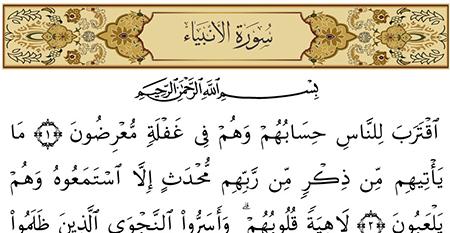 سُورَةُ الأَنبِيَاء
بِسْمِ اللَّهِ الرَّحْمَٰنِ الرَّحِيمِ
ٱقْتَرَبَ لِلنَّاسِ حِسَابُهُمْ وَهُمْ فِى غَفْلَةٍ مُّعْرِضُونَ ﴿١﴾ مَا
يَأْتِيهِم مِّن ذِكْرٍ مِّن رَّبِّهِم مُّحْدَثٍ إِلَّا ٱسْتَمَعُوهُ وَهُمْ
يَلْعَبُونَ ﴿٢﴾ لَاهِيَةً قُلُوبُهُمْ ۗ وَأَسَرُّوا۟ ٱلنَّجْوَى ٱلَّذِينَ ظَلَمُوا۟